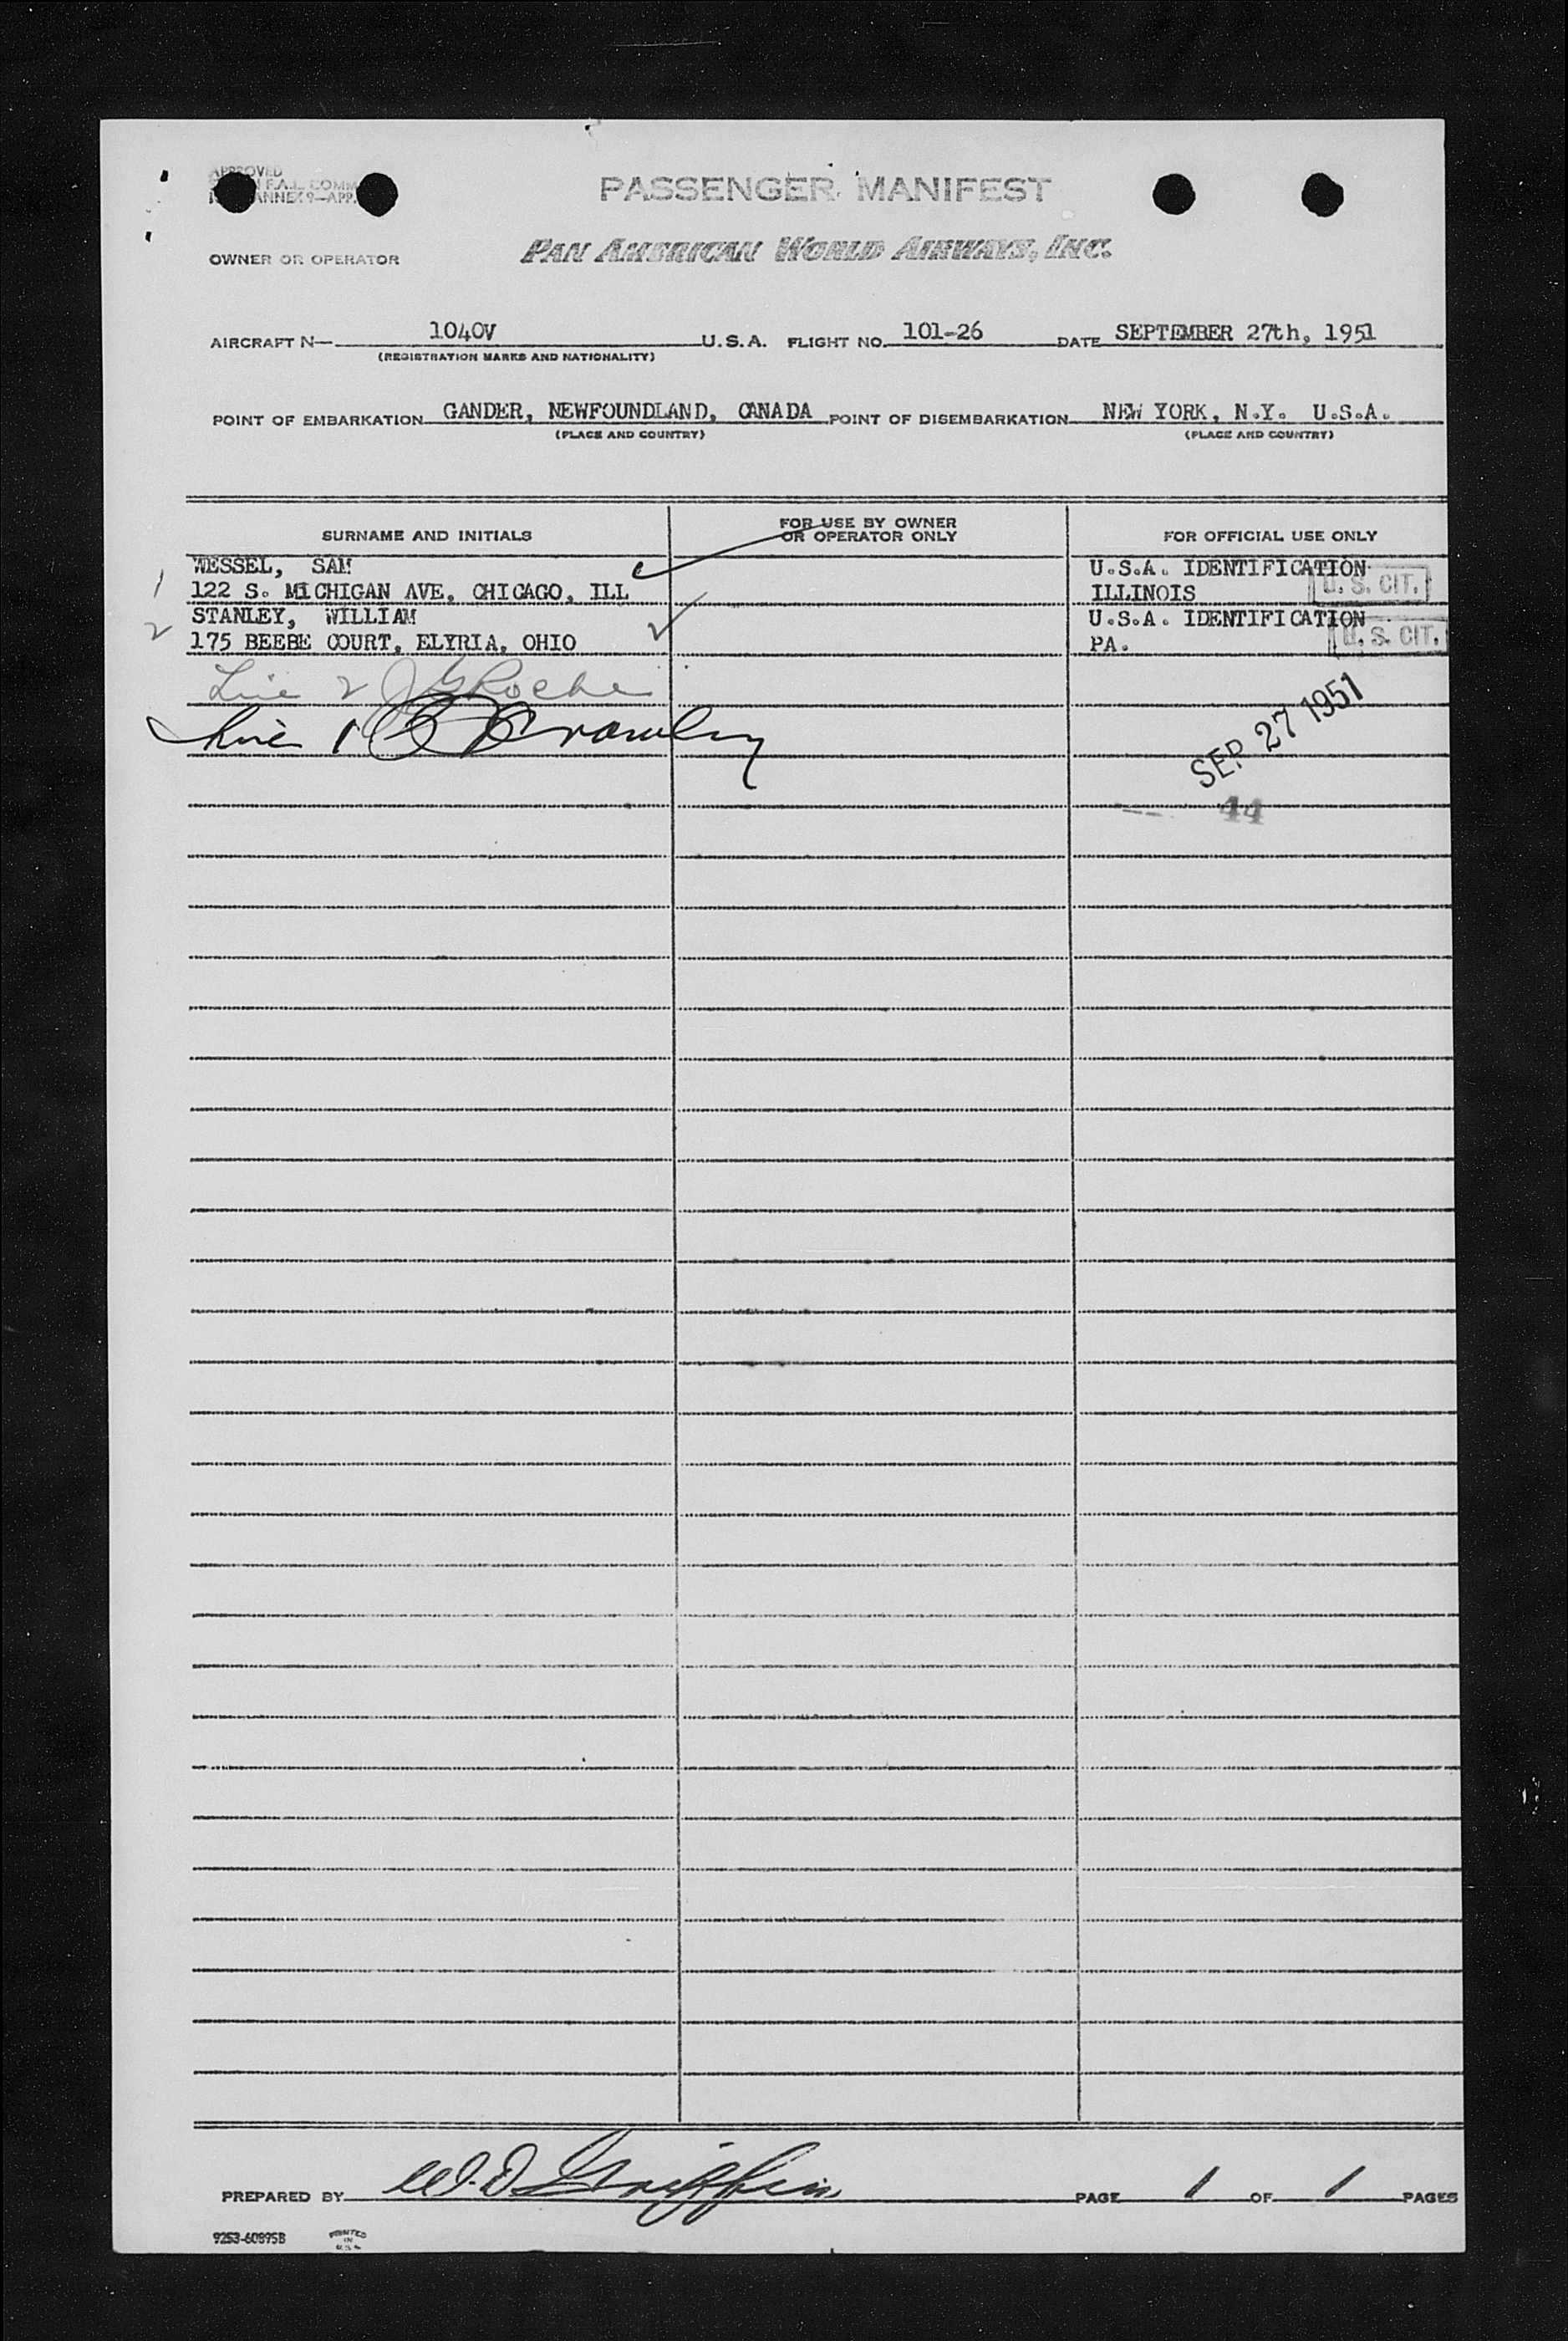 APPROVED
F.A.L. COMM
ANNEX 9—APP.
PASSENGER MANIFEST
OWNER OR OPERATOR PAN AMERICAN WORLD AIRWAYS, INC.
AIRCRAFT N— 1040V U.S.A. FLIGHT NO. 101-26 DATE SEPTEMBER 27th, 1951
(REGISTRATION MARKS AND NATIONALITY)
POINT OF EMBARKATION GANDER, NEWFOUNDLAND, CANADA POINT OF DISEMBARKATION NEW YORK, N.Y. U.S.A.
(PLACE AND COUNTRY) (PLACE AND COUNTRY)
SURNAME AND INITIALS FOR USE BY OWNER OR OPERATOR ONLY FOR OFFICIAL USE ONLY
WESSEL, SAM U.S.A. IDENTIFICATION
1 122 S. MICHIGAN AVE, CHICAGO, ILL ILLINOIS U. S. CIT.
STANLEY, WILLIAM U.S.A. IDENTIFICATION
2 175 BEEBE COURT, ELYRIA, OHIO PA. U. S. CIT.
Line 2 J G Roche
Line 1 Crowley
SEP 27 1951
44
PREPARED BY W. D Griffin PAGE 1 OF 1 PAGES
9253-60895B PRINTED IN U.S.A.